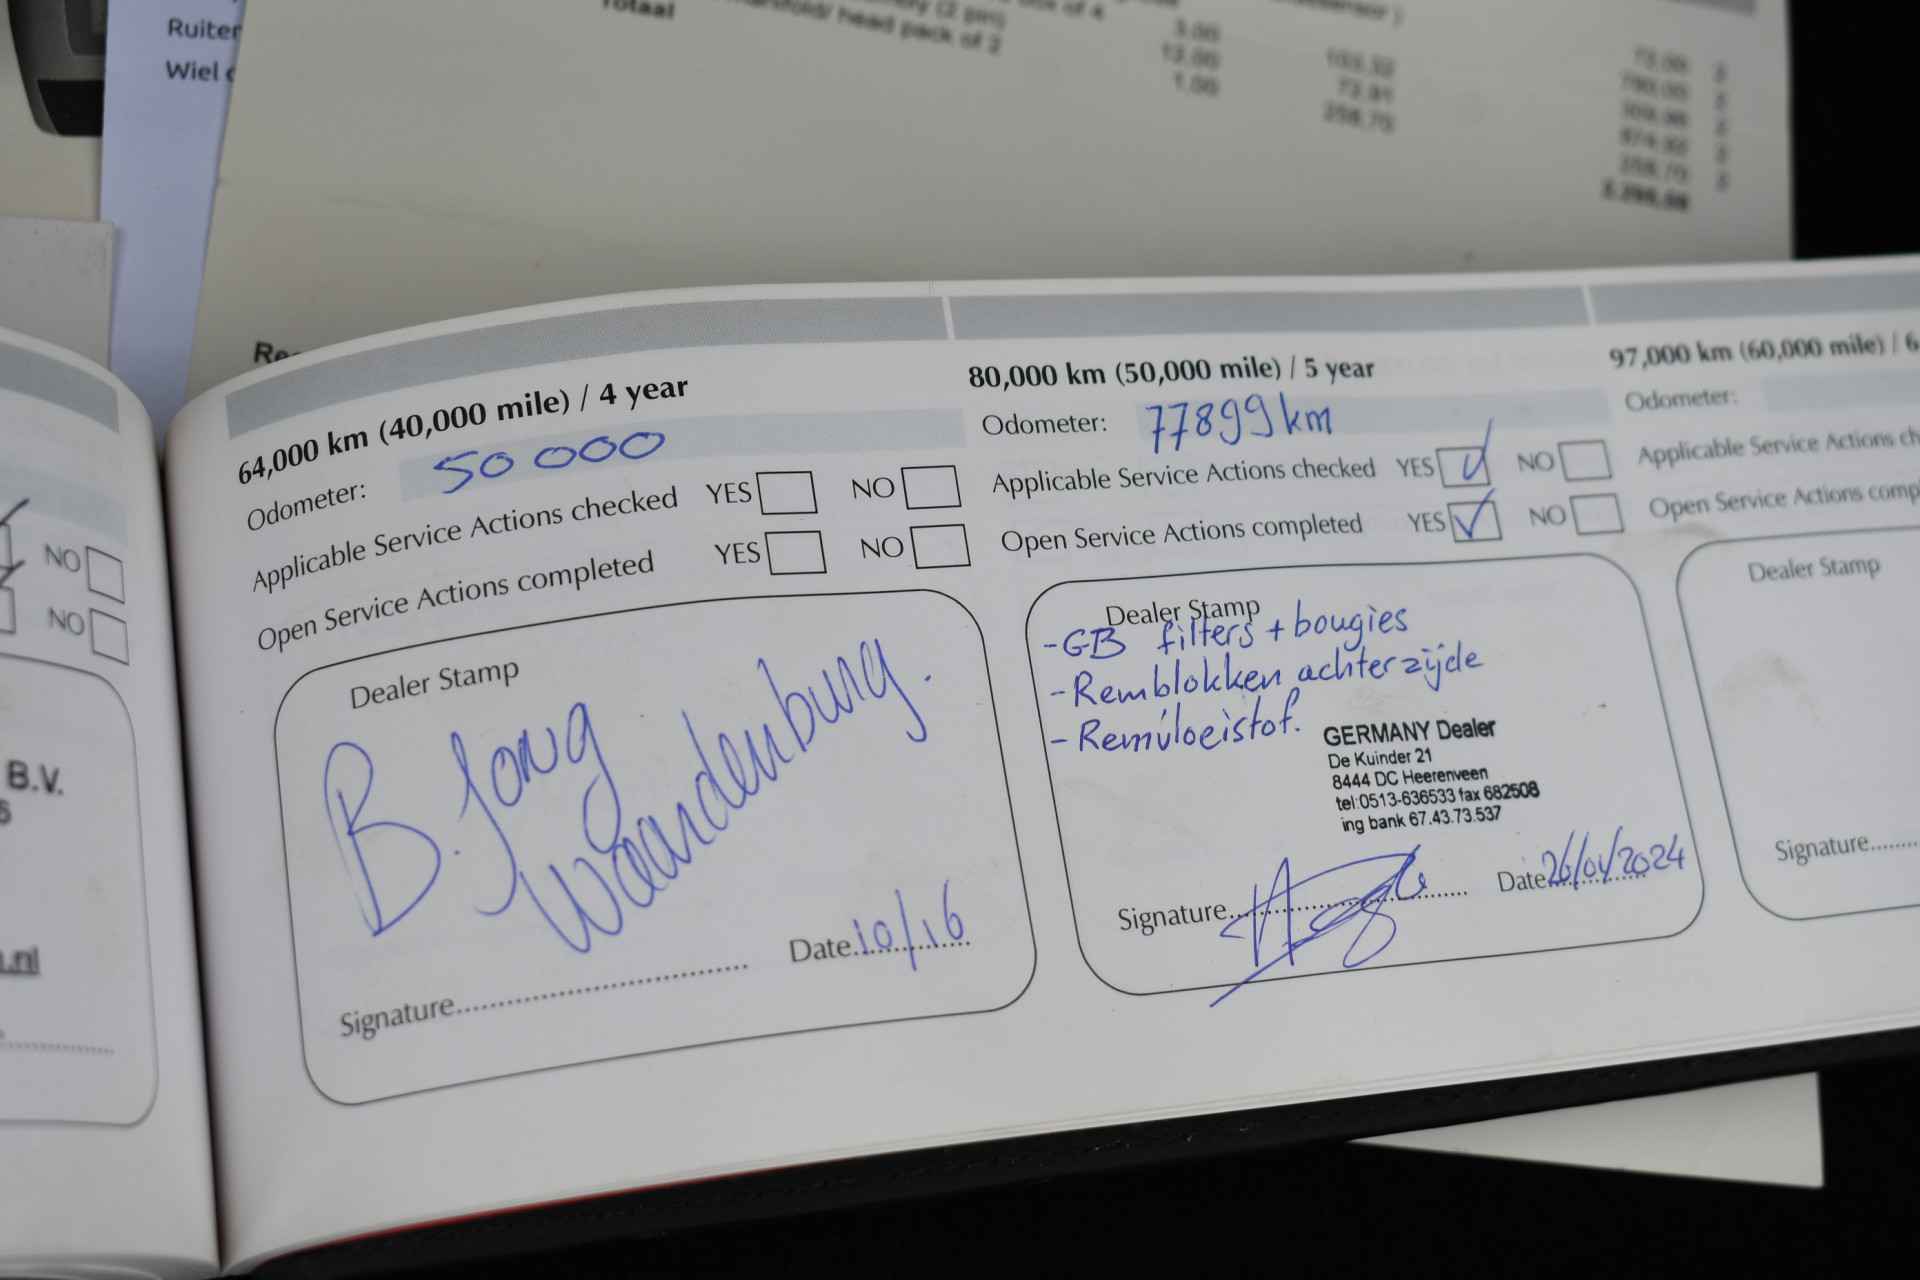 Ruiter
Wiel
Totaal
manifold/ head pack of 2
3.00
12.00
1.00
103,32
72,91
258,70
B.V.
NO
NO
.nl
64,000 km (40,000 mile) / 4 year
Odometer: 50 000
Applicable Service Actions checked YES NO
Open Service Actions completed YES NO
Dealer Stamp
B. Jong
Waardenburg.
Signature
Date 10/16
80,000 km (50,000 mile) / 5 year
Odometer: 77899 km
Applicable Service Actions checked YES NO
Open Service Actions completed YES NO
Dealer Stamp
- GB filters + bougies
- Remblokken achterzijde
- Remvloeistof.
GERMANY Dealer
De Kuinder 21
8444 DC Heerenveen
tel:0513-636533 fax 682508
ing bank 67.43.73.537
Signature
Date 26/01/2024
97,000 km (60,000 mile) / 6
Odometer:
Applicable Service Actions ch
Open Service Actions comp
Dealer Stamp
Signature